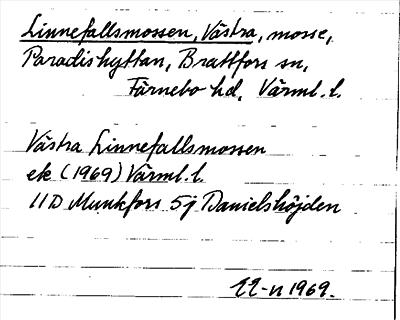 Linnefallsmossen, Västra, mosse,
Paradishyttan, Brattfors sn,
Färnebo hd, Värml. l.
Västra Linnefallsmossen
ek (1969) Värml. l.
11D Munkfors 5j Danielshöjden
1969.